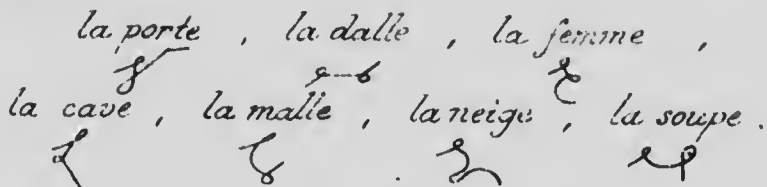 la porte , la dalle , la femme ,
la cave , la malle , la neige , la soupe .